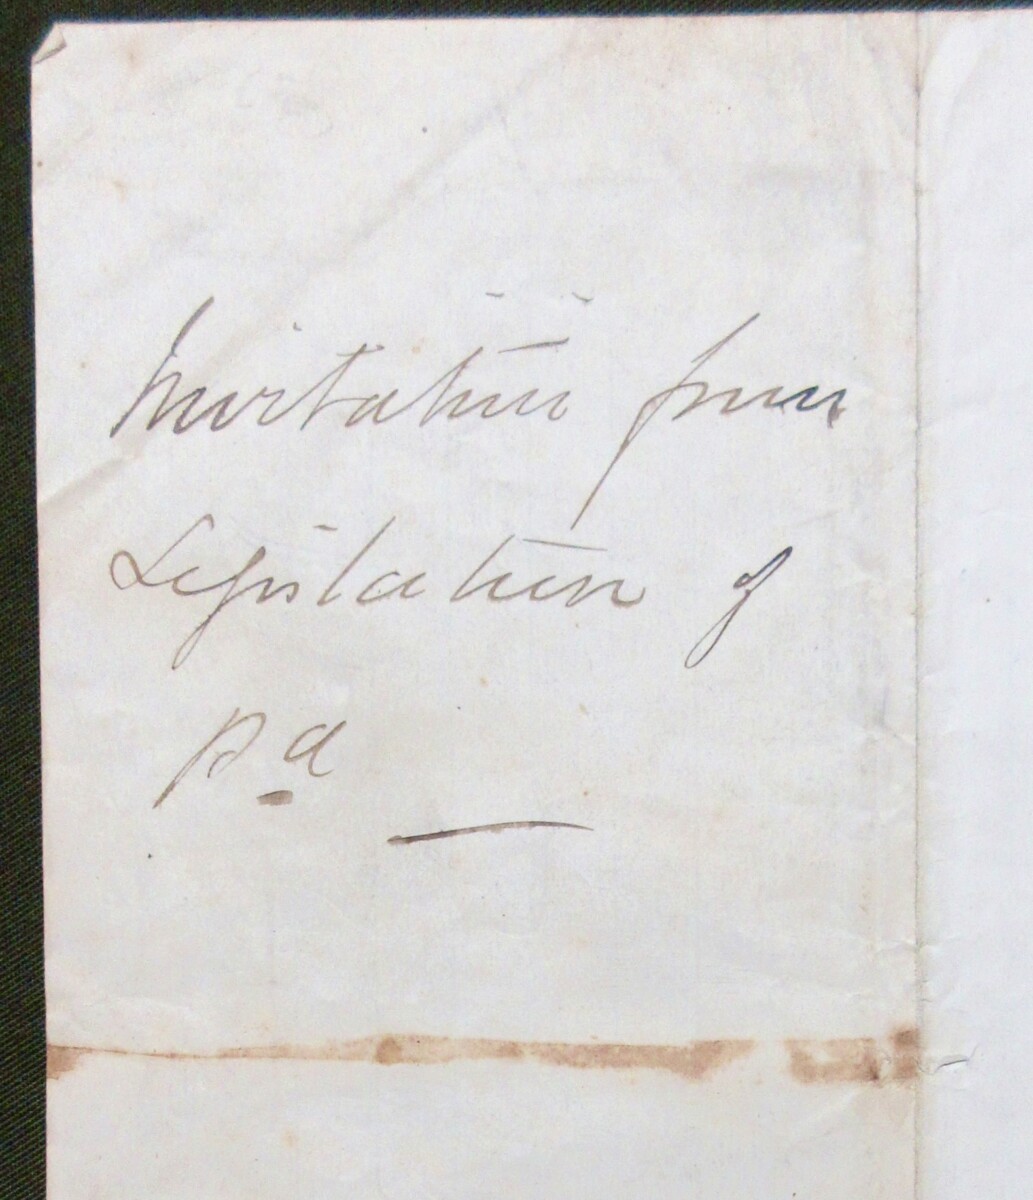 Invitation from
Legislation of
Pa